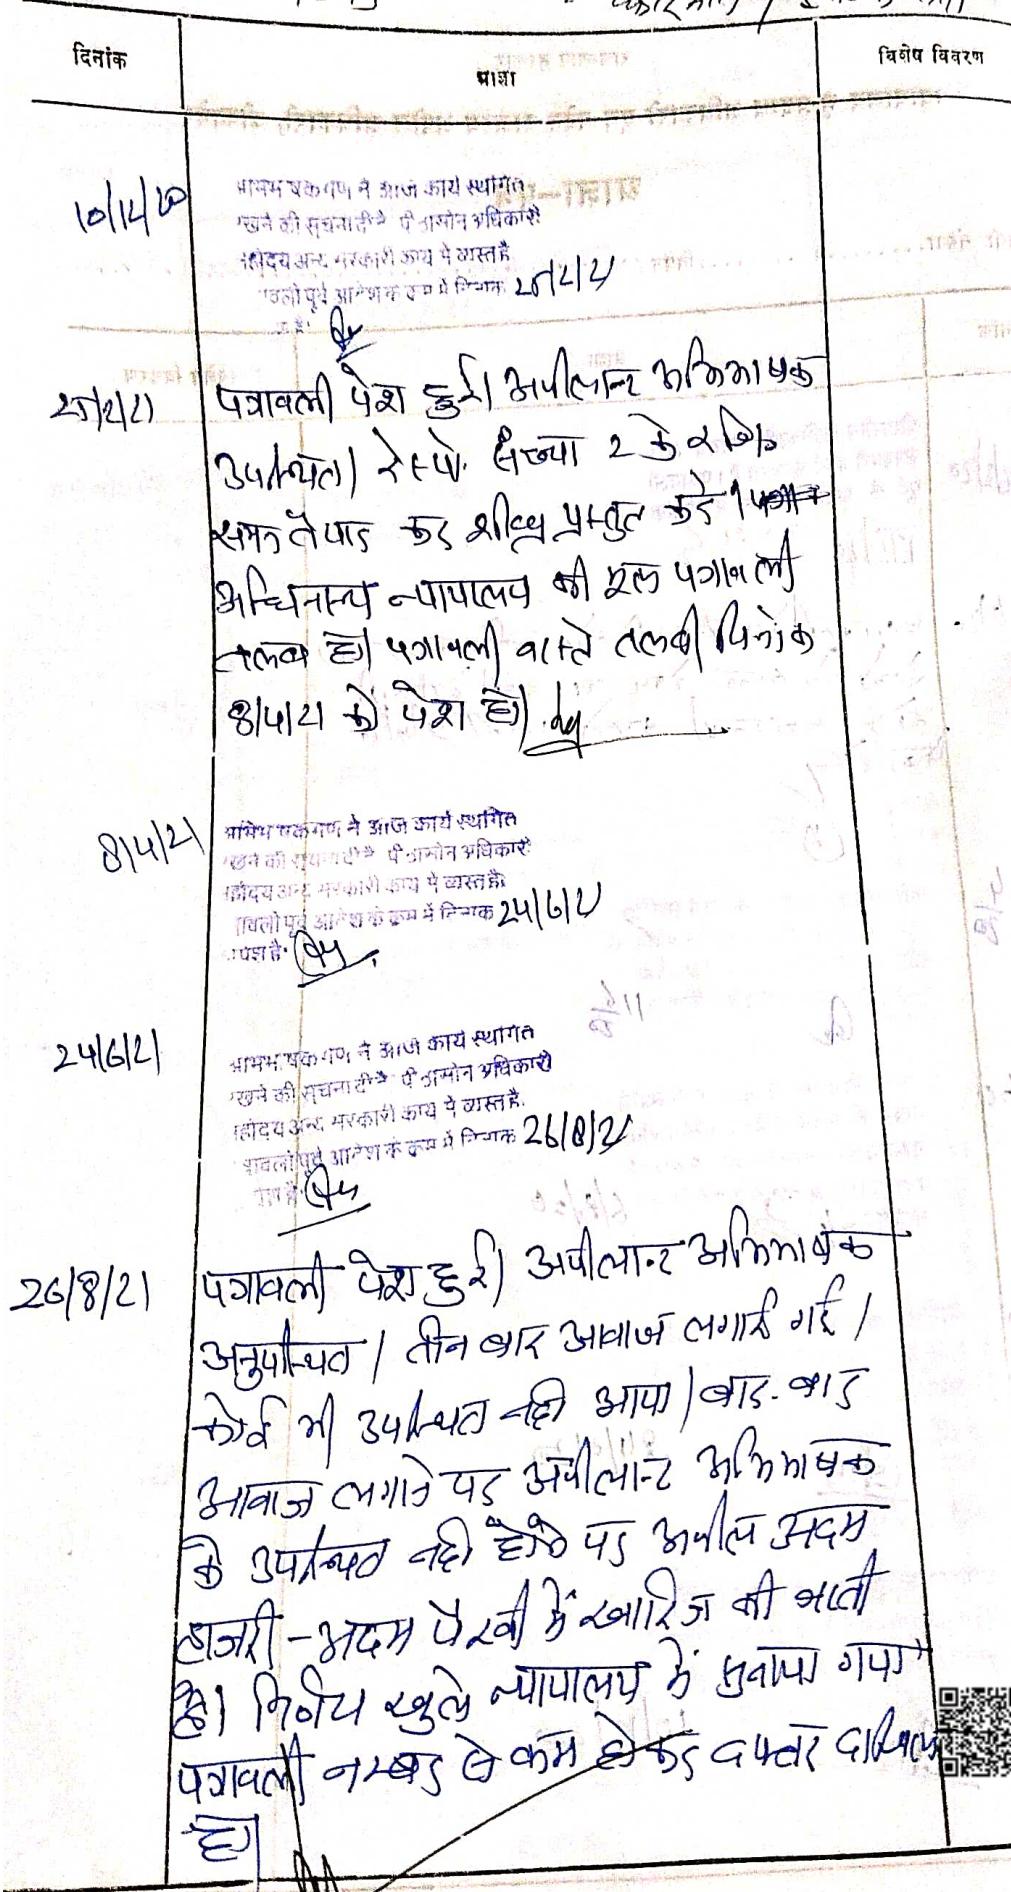 दिनांक
आज्ञा
विशेष विवरण
अभिभाषकगण ने आज कार्य स्थगित
रखने की सूचना दी है पीठासीन अधिकारी
महोदय अन्य सरकारी कार्य में व्यस्त है
पत्रावली पूर्व आदेश के क्रम में दिनांक
25/2/21
पत्रावली पेश हुई। अपीलान्ट अभिभाषक
उपस्थित। रेस्पो. संख्या 2 के रजि०
कर शीघ्र प्रस्तुत करे।
अधिनस्थ न्यायालय की मूल पत्रावली
तलब हो। पत्रावली वास्ते तलबी दिनांक
8/4/21 को पेश हो।
8/4/21
अभिभाषकगण ने आज कार्य स्थगित
रखने की सूचना दी है पीठासीन अधिकारी
महोदय अन्य सरकारी कार्य में व्यस्त है
पत्रावली पूर्व आदेश के क्रम में दिनांक 24/6/21
पेश है.
24/6/21
अभिभाषकगण ने आज कार्य स्थगित
रखने की सूचना दी है पीठासीन अधिकारी
महोदय अन्य सरकारी कार्य में व्यस्त है.
पत्रावली पूर्व आदेश के क्रम में दिनांक 26/8/21
पेश है.
26/8/21
पत्रावली पेश हुई। अपीलान्ट अभिभाषक
अनुपस्थित। तीन बार आवाज लगाई गई।
कोई भी उपस्थित नही आया। बार-बार
आवाज लगाने पर अपीलान्ट अभिभाषक
के उपस्थित नही होने पर अपील अदम
हाजरी-अदम पैरवी में खारिज की जाती
है। निर्णय खुले न्यायालय में सुनाया गया
पत्रावली नम्बर से कम होकर दफ्तर दाखिल
हो।